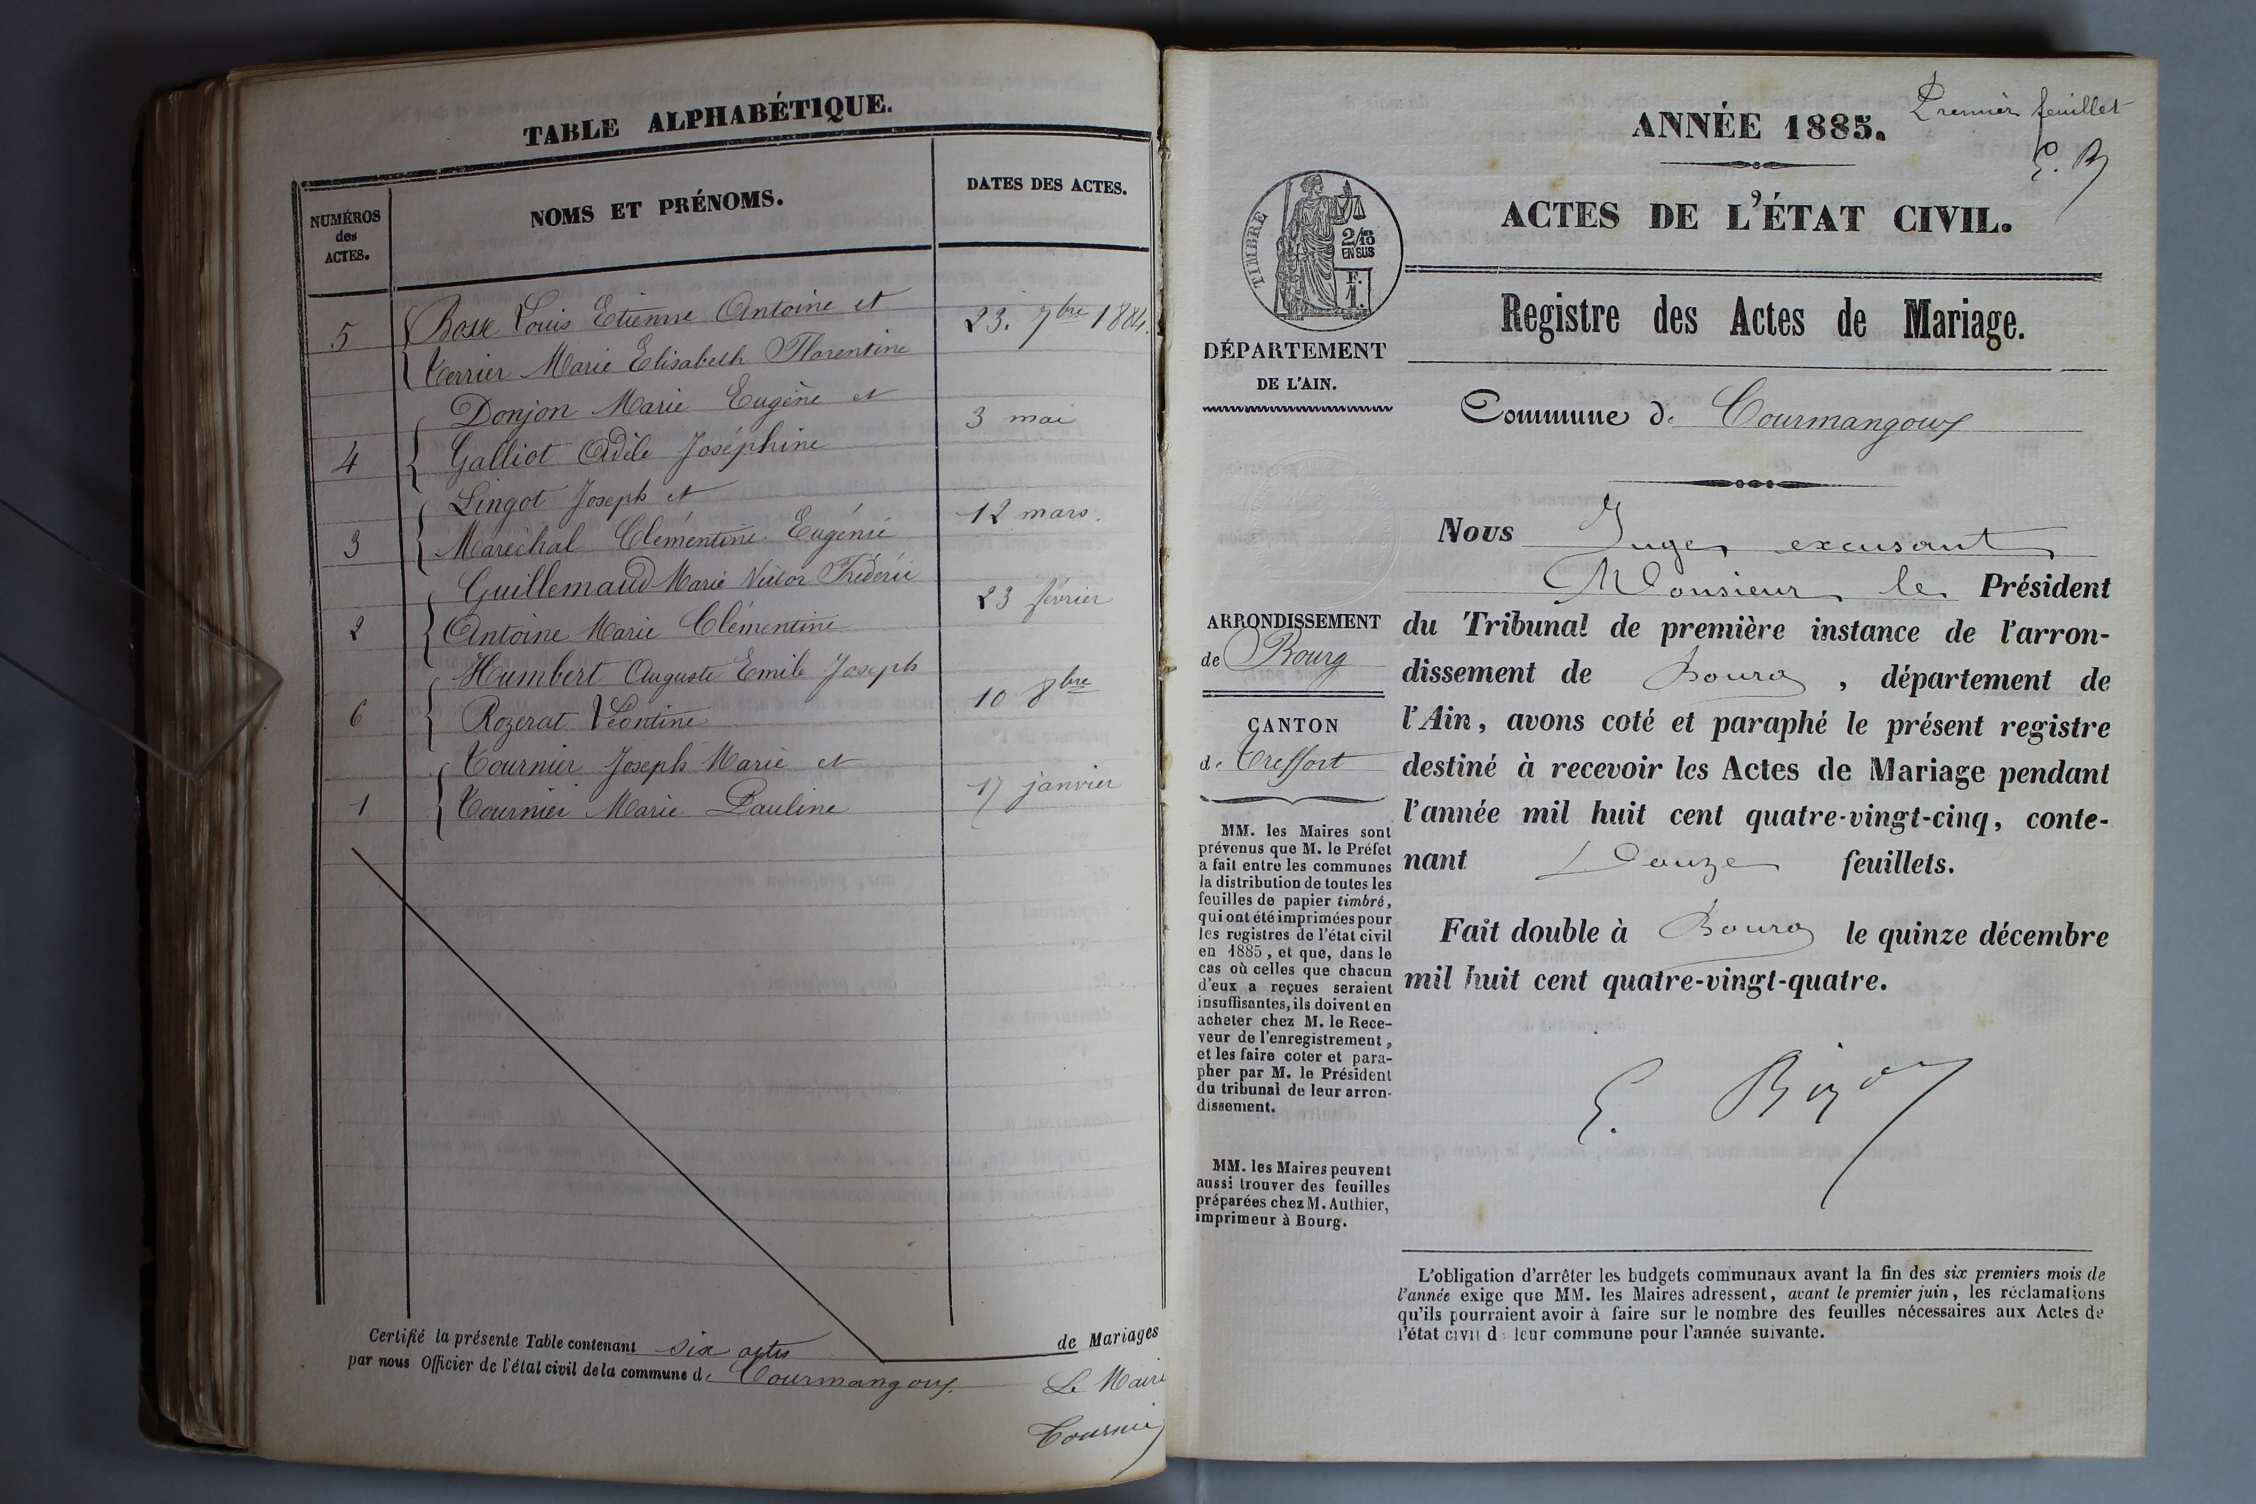 TABLE ALPHABÉTIQUE.
NUMÉROS
des
ACTES.
NOMS ET PRÉNOMS.
DATES DES ACTES.
5 Louis Etienne Antoine et 23. 7bre 1884.
Verrier Marie Elisabeth Florentine
Donjon Marie Eugène et
4 Galliot Adèle Joséphine 3 mai
Lingot Joseph et
3 Maréchal Clémentine Eugénie 12 mars.
Guillemaud Marie Victor Frédéric
2 Antoine Marie Clémentine 23 février
Humbert Auguste Emile Joseph
6 Rozerat Léontine 10 8bre
Tournier Joseph Marie et
1 Tournier Marie Pauline 17 janvier
Certifié la présente Table contenant six actes de Mariages
par nous Officier de l'état civil de la commune de Courmangoux.
Le Maire
Tournier
Premier feuillet
E. B
ANNÉE 1885.
ACTES DE L'ÉTAT CIVIL.
TIMBRE
2/10
EN SUS
F.
1.
Registre des Actes de Mariage.
DÉPARTEMENT
DE L'AIN.
Commune de Courmangoux
ARRONDISSEMENT
de Bourg
CANTON
de Treffort
MM. les Maires sont
prévenus que M. le Préfet
a fait entre les communes
la distribution de toutes les
feuilles de papier timbré,
qui ont été imprimées pour
les registres de l'état civil
en 1885, et que, dans le
cas où celles que chacun
d'eux a reçues seraient
insuffisantes, ils doivent en
acheter chez M. le Rece-
veur de l'enregistrement,
et les faire coter et para-
pher par M. le Président
du tribunal de leur arron-
dissement.
MM. les Maires peuvent
aussi trouver des feuilles
préparées chez M. Authier,
imprimeur à Bourg.
Nous Juge, excusant
Monsieur le Président
du Tribunal de première instance de l'arron-
dissement de Bourg, département de
l'Ain, avons coté et paraphé le présent registre
destiné à recevoir les Actes de Mariage pendant
l'année mil huit cent quatre-vingt-cinq, conte-
nant Douze feuillets.
Fait double à Bourg le quinze décembre
mil huit cent quatre-vingt-quatre.
E.
L'obligation d'arrêter les budgets communaux avant la fin des six premiers mois de
l'année exige que MM. les Maires adressent, avant le premier juin, les réclamations
qu'ils pourraient avoir à faire sur le nombre des feuilles nécessaires aux Actes de
l'état civil de leur commune pour l'année suivante.